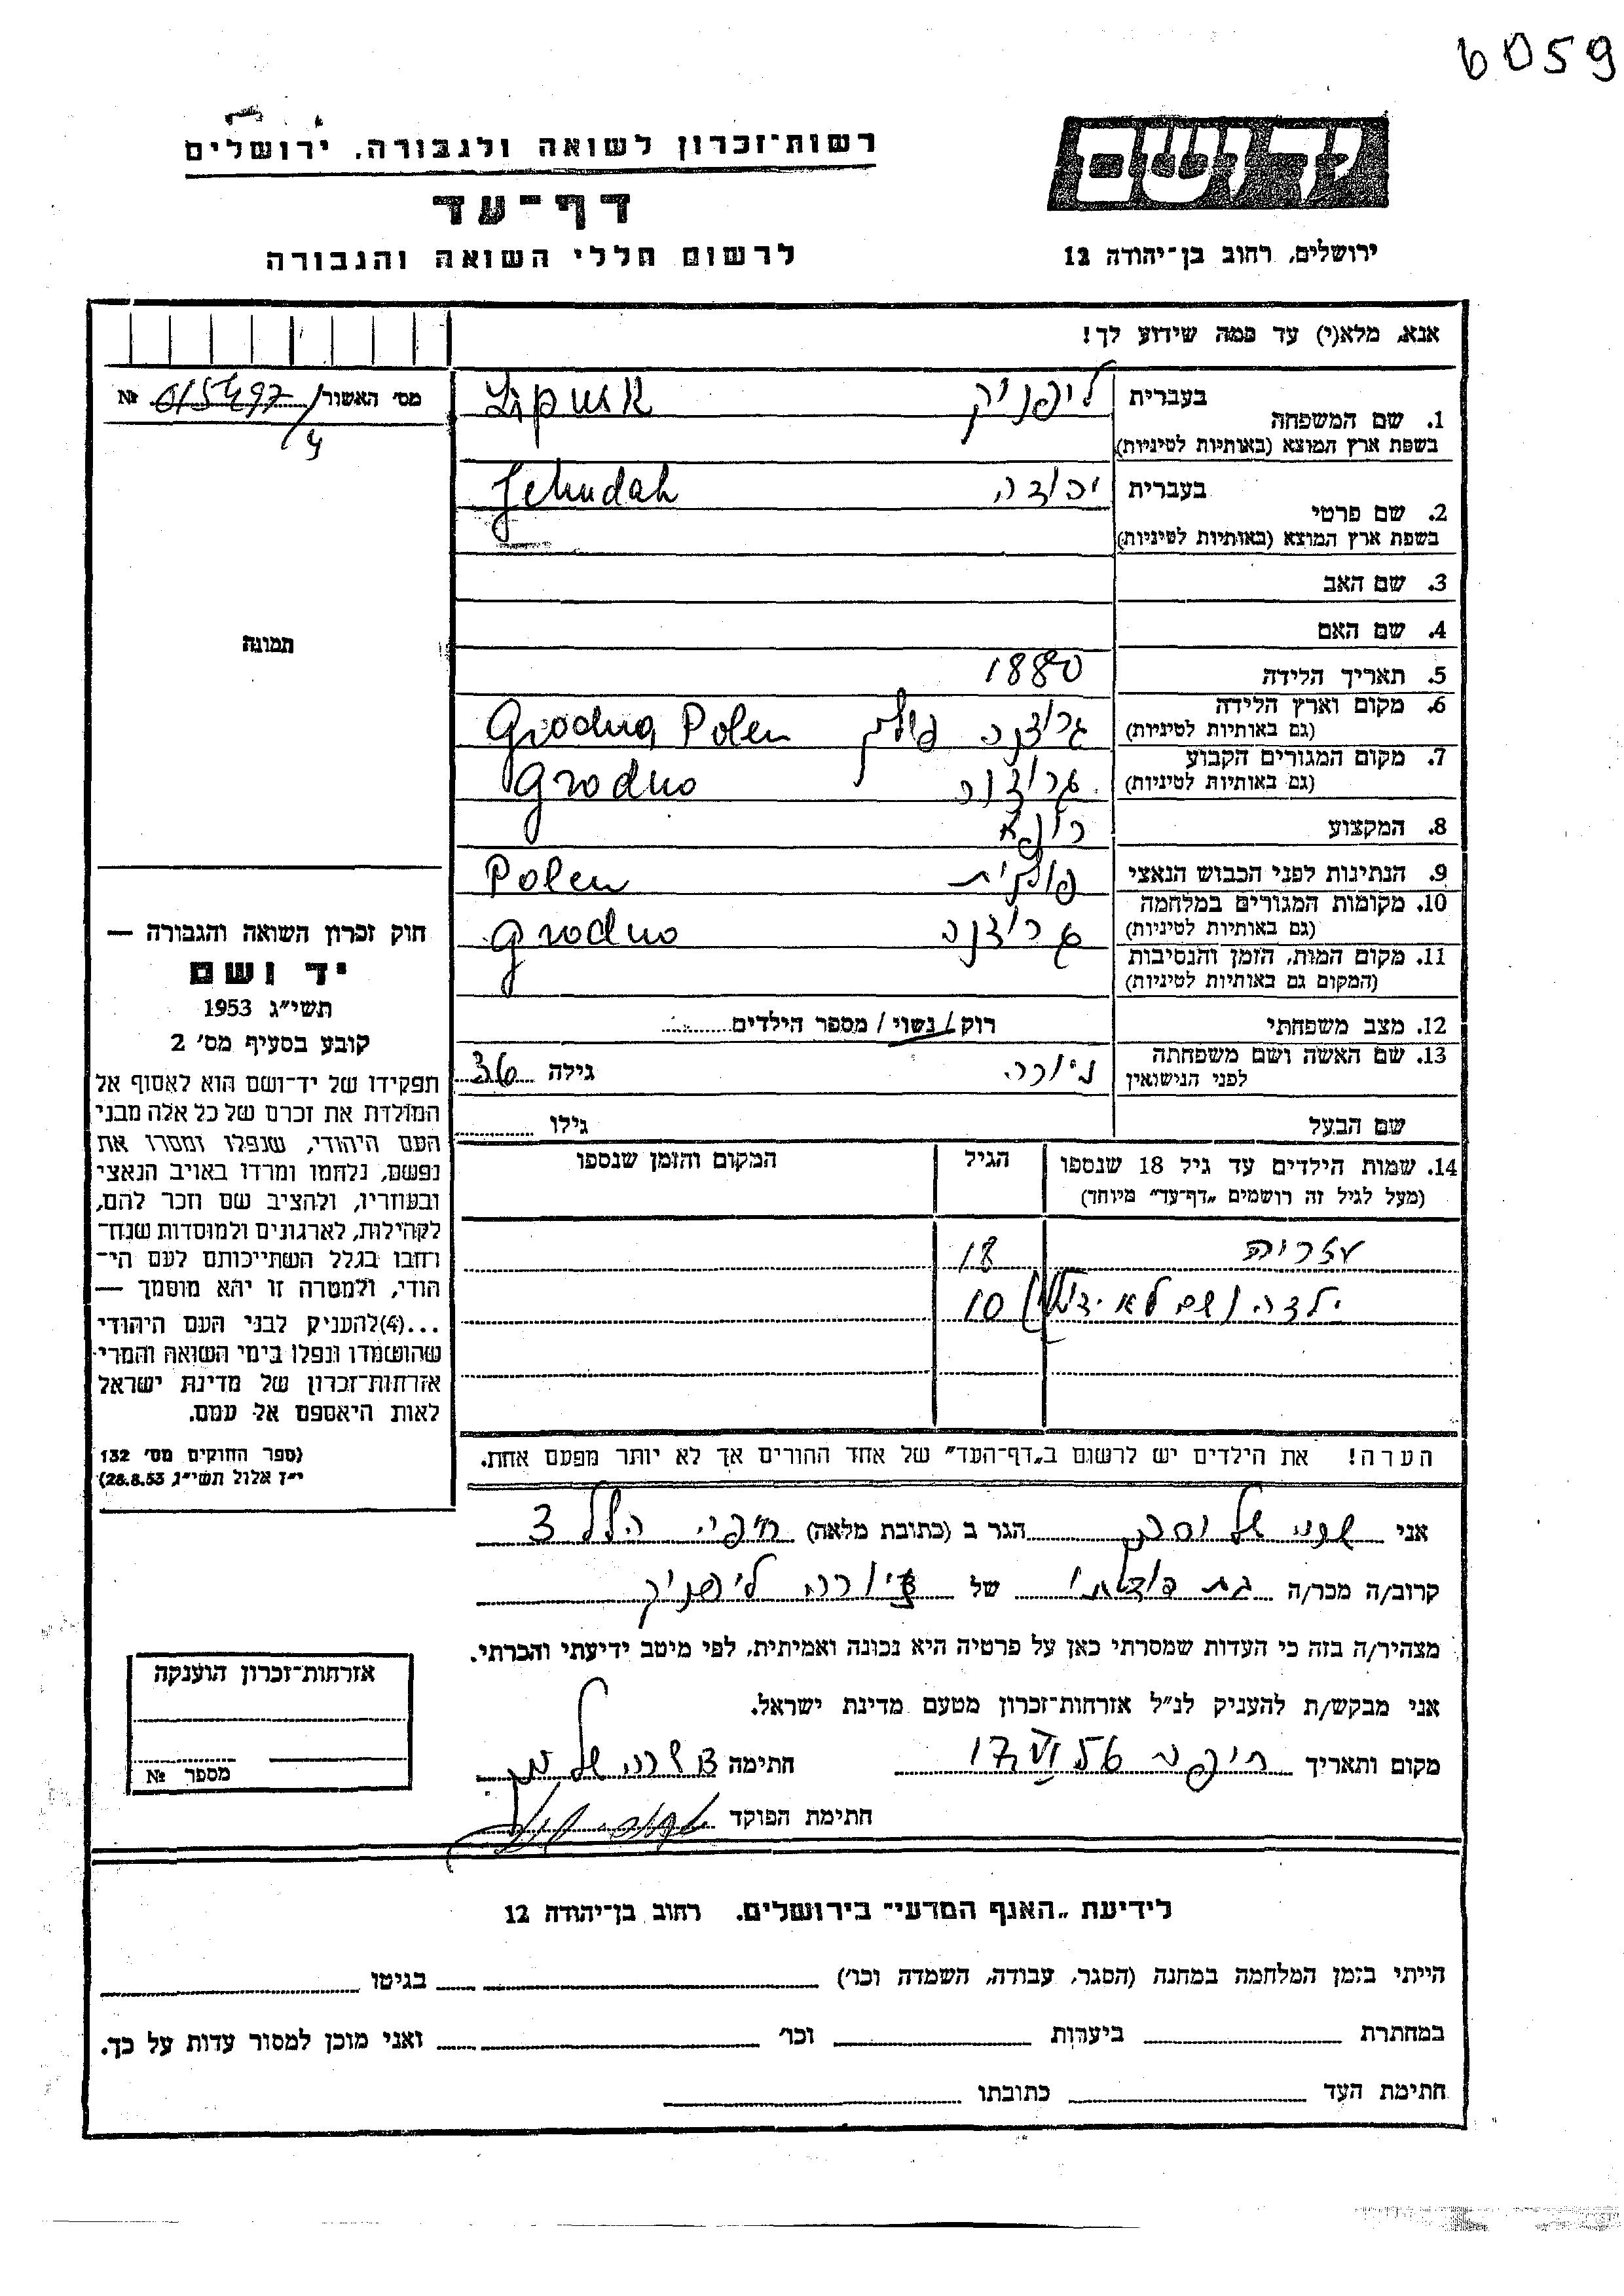 6059
רשות־זכרון לשואה ולגבורה. ירושלים
דף־עד
לרשום חללי השואה והגבורה
יד ושם
ירושלים, רחוב בן־יהודה 12
אנא, מלא(י) עד כמה שידוע לך!
מס׳ האשור №
1. שם המשפחה
בעברית ליפניק Lipnik
בשפת ארץ המוצא (באותיות לטיניות)
2. שם פרטי
בעברית יהודה Jehudah
בשפת ארץ המוצא (באותיות לטיניות)
3. שם האב
4. שם האם
5. תאריך הלידה 1880
6. מקום וארץ הלידה גרודנה פולין Grodno, Polen
(גם באותיות לטיניות)
7. מקום המגורים הקבוע גרודנה Grodno
(גם באותיות לטיניות)
8. המקצוע רופא
9. הנתינות לפני הכבוש הנאצי פולנית Polen
10. מקומות המגורים במלחמה גרודנה Grodno
(גם באותיות לטיניות)
11. מקום המות, הזמן והנסיבות
(המקום גם באותיות לטיניות)
12. מצב משפחתי רוק / נשוי / מספר הילדים
13. שם האשה ושם משפחתה גילה 36
לפני הנישואין
שם הבעל גילו
14. שמות הילדים עד גיל 18 שנספו הגיל המקום והזמן שנספו
(מעל לגיל זה רושמים „דף־עד״ מיוחד)
עזריה 18
ילדה (שם לא ידוע) 10
הערה! את הילדים יש לרשום ב„דף־העד״ של אחד ההורים אך לא יותר מפעם אחת.
תמונה
חוק זכרון השואה והגבורה —
יד ושם
תשי״ג 1953
קובע בסעיף מס׳ 2
תפקידו של יד־ושם הוא לאסוף אל
המולדת את זכרם של כל אלה מבני
העם היהודי, שנפלו ומסרו את
נפשם, נלחמו ומרדו באויב הנאצי
ובעוזריו, ולהציב שם וזכר להם,
לקהילות, לארגונים ולמוסדות שנח־
רחבו בגלל השתייכותם לעם הי־
הודי, ולמטרה זו יהא מוסמך —
...(4)להעניק לבני העם היהודי
שהושמדו ונפלו בימי השואה והמרי
אזרחות־זכרון של מדינת ישראל
לאות היאספם אל עמם.
(ספר החוקים מס׳ 132
י״ז אלול תשי״ג 28.8.53)
אני הגר ב (כתובת מלאה) חיפה הלל 3
קרוב/ה מכר/ה בת דודתו של ליפניק
מצהיר/ה בזה כי העדות שמסרתי כאן על פרטיה היא נכונה ואמיתית, לפי מיטב ידיעתי והכרתי.
אני מבקש/ת להעניק לנ״ל אזרחות־זכרון מטעם מדינת ישראל.
מקום ותאריך חיפה 17 VI 56 חתימה
חתימת הפוקד
אזרחות־זכרון הוענקה
מספר №
לידיעת „האנף המדעי״ בירושלים. רחוב בן־יהודה 12
הייתי בזמן המלחמה במחנה (הסגר, עבודה, השמדה וכו׳) בגיטו
במחתרת ביערות וכו׳ ואני מוכן למסור עדות על כך.
חתימת העד כתובתו